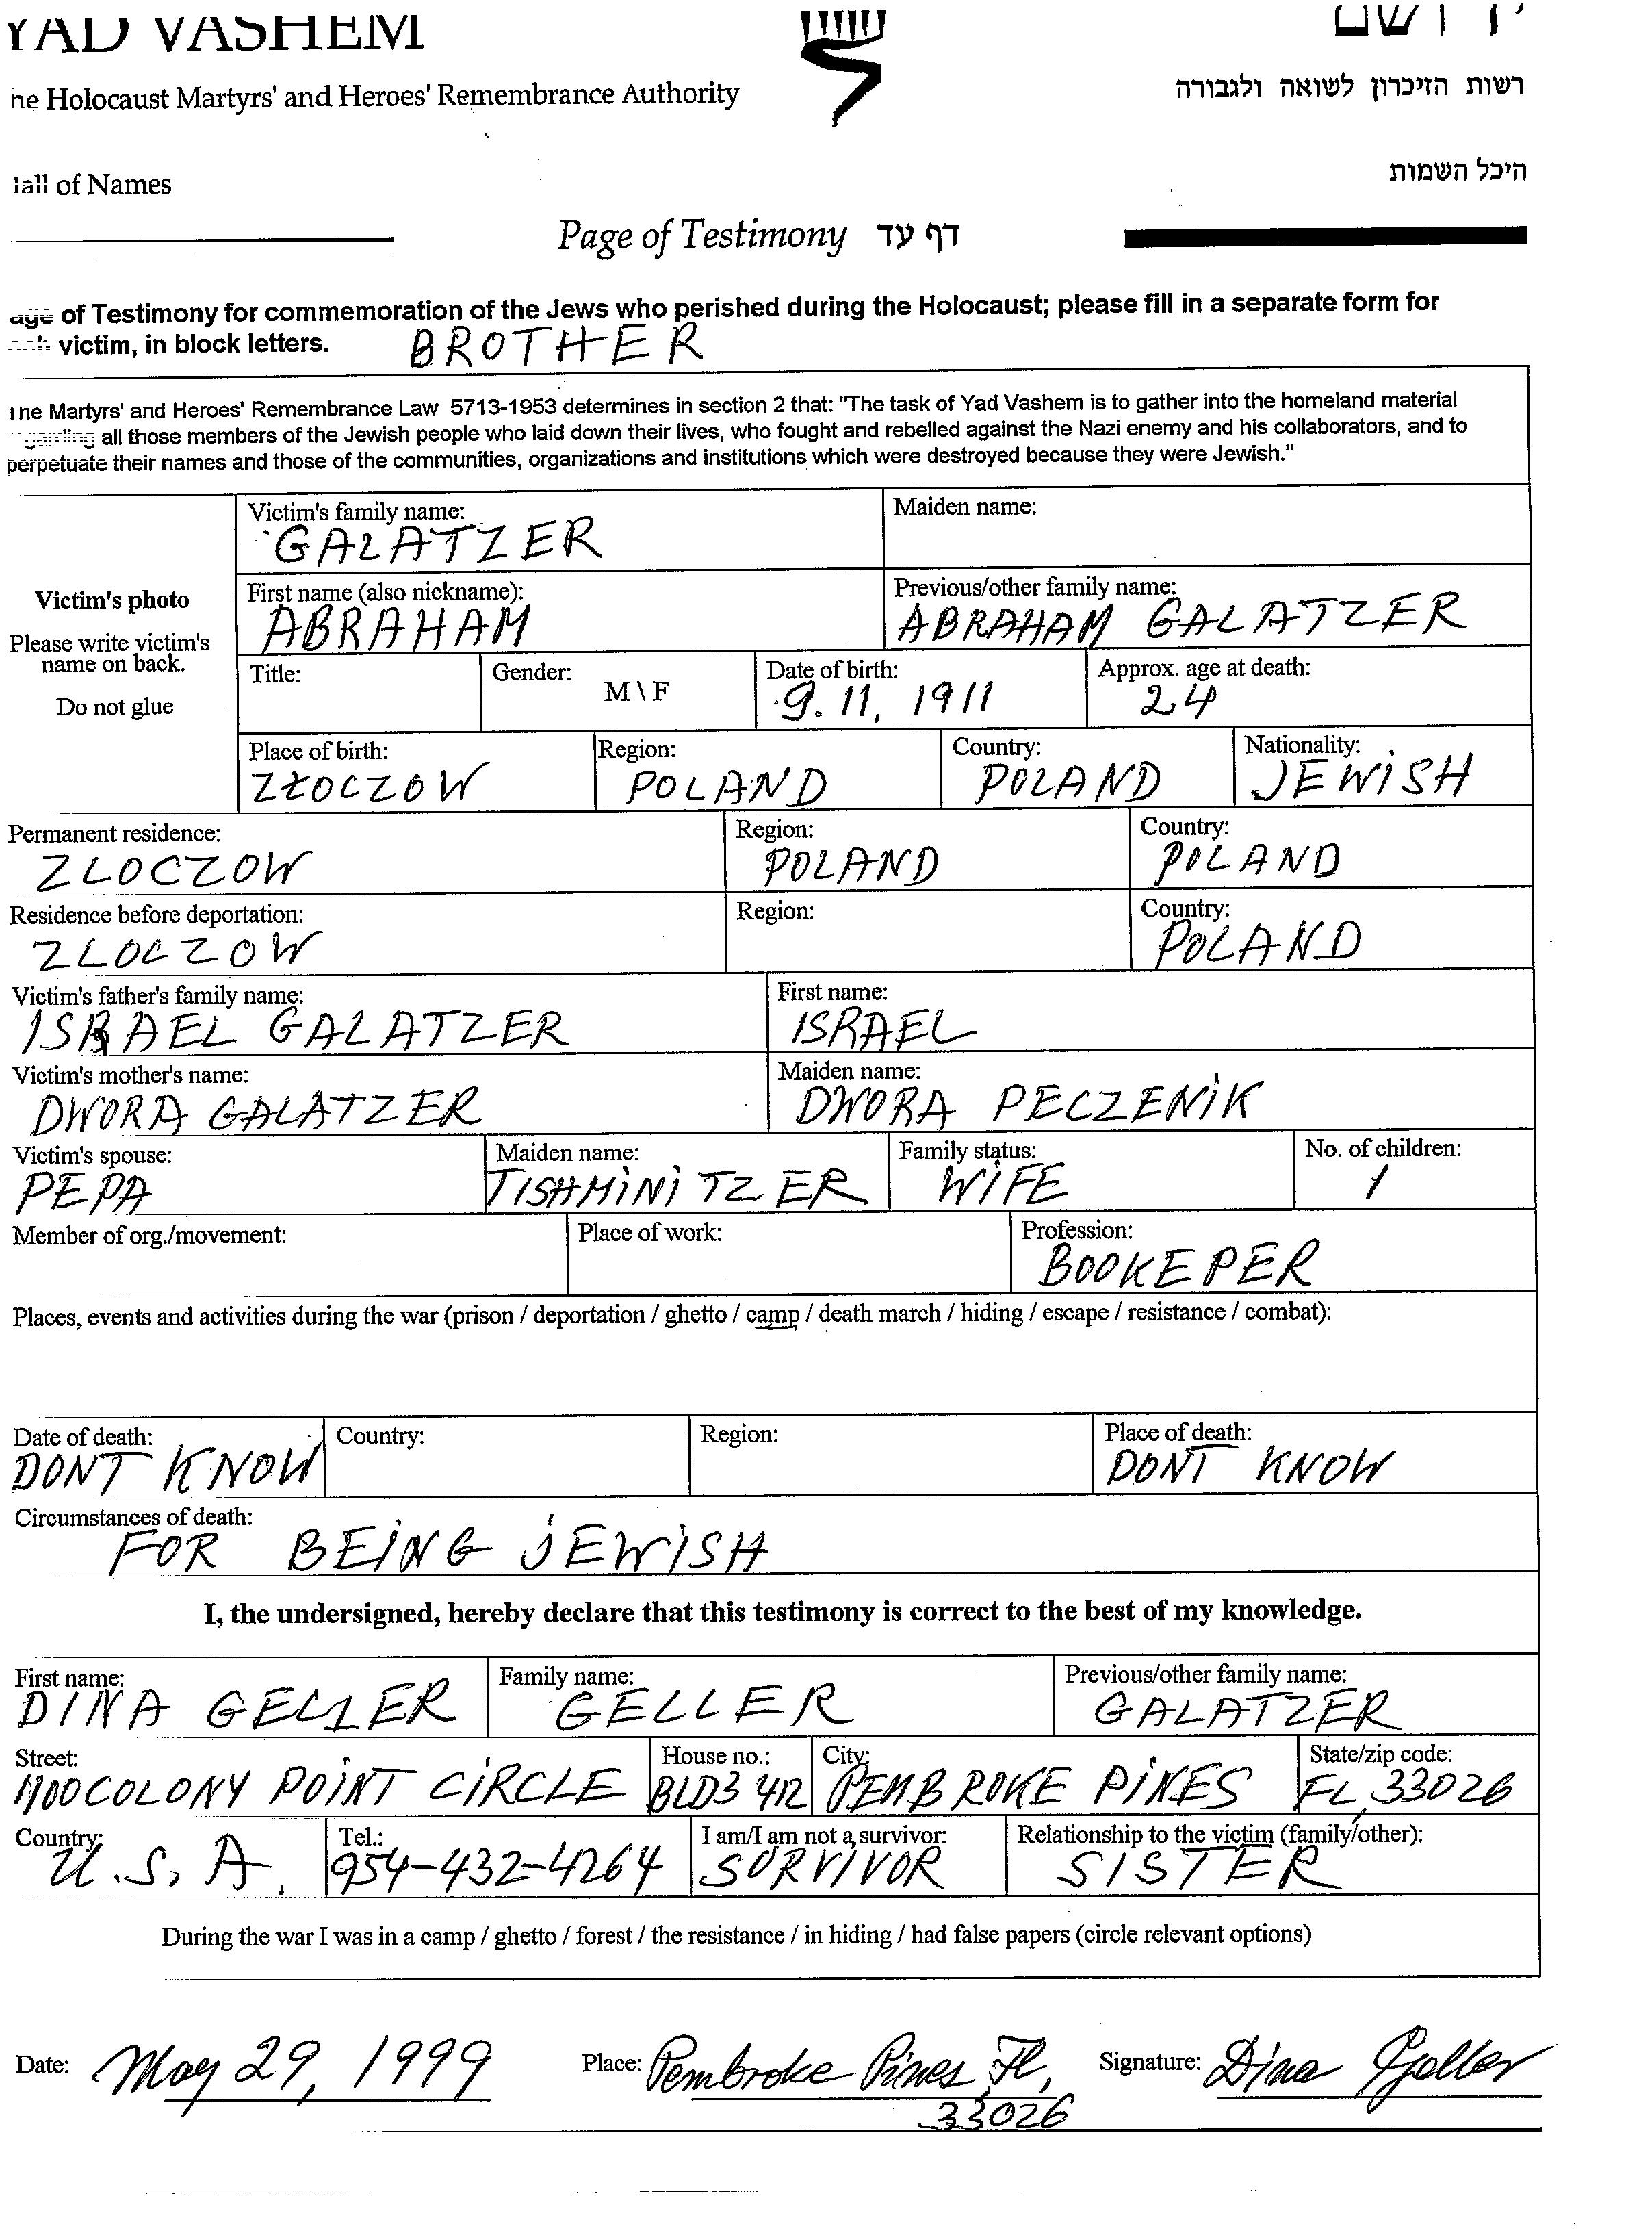 YAD VASHEM
יד ושם
he Holocaust Martyrs' and Heroes' Remembrance Authority
רשות הזיכרון לשואה ולגבורה
Hall of Names
היכל השמות
Page of Testimony דף עד
age of Testimony for commemoration of the Jews who perished during the Holocaust; please fill in a separate form for
victim, in block letters. BROTHER
The Martyrs' and Heroes' Remembrance Law 5713-1953 determines in section 2 that: "The task of Yad Vashem is to gather into the homeland material
all those members of the Jewish people who laid down their lives, who fought and rebelled against the Nazi enemy and his collaborators, and to
perpetuate their names and those of the communities, organizations and institutions which were destroyed because they were Jewish."
Victim's photo
Please write victim's
name on back.
Do not glue
Victim's family name: Maiden name:
GALATZER
First name (also nickname): Previous/other family name:
ABRAHAM ABRAHAM GALATZER
Title: Gender: M\F Date of birth: Approx. age at death:
9.11, 1911 24
Place of birth: Region: Country: Nationality:
ZŁOCZOW POLAND POLAND JEWISH
Permanent residence: Region: Country:
ZLOCZOW POLAND POLAND
Residence before deportation: Region: Country:
ZLOCZOW POLAND
Victim's father's family name: First name:
ISRAEL GALATZER ISRAEL
Victim's mother's name: Maiden name:
DWORA GALATZER DWORA PECZENIK
Victim's spouse: Maiden name: Family status: No. of children:
PEPA TISHMINITZER WIFE 1
Member of org./movement: Place of work: Profession:
BOOKEPER
Places, events and activities during the war (prison / deportation / ghetto / camp / death march / hiding / escape / resistance / combat):
Date of death: Country: Region: Place of death:
DONT KNOW DONT KNOW
Circumstances of death:
FOR BEING JEWISH
I, the undersigned, hereby declare that this testimony is correct to the best of my knowledge.
First name: Family name: Previous/other family name:
DINA GELLER GELLER GALATZER
Street: House no.: City: State/zip code:
1100 COLONY POINT CIRCLE BLD3 412 PEMBROKE PINES FL, 33026
Country: Tel.: I am/I am not a survivor: Relationship to the victim (family/other):
U.S.A. 954-432-4264 SURVIVOR SISTER
During the war I was in a camp / ghetto / forest / the resistance / in hiding / had false papers (circle relevant options)
Date: May 29, 1999 Place: Pembroke Pines, Fl, Signature: Dina Geller
33026